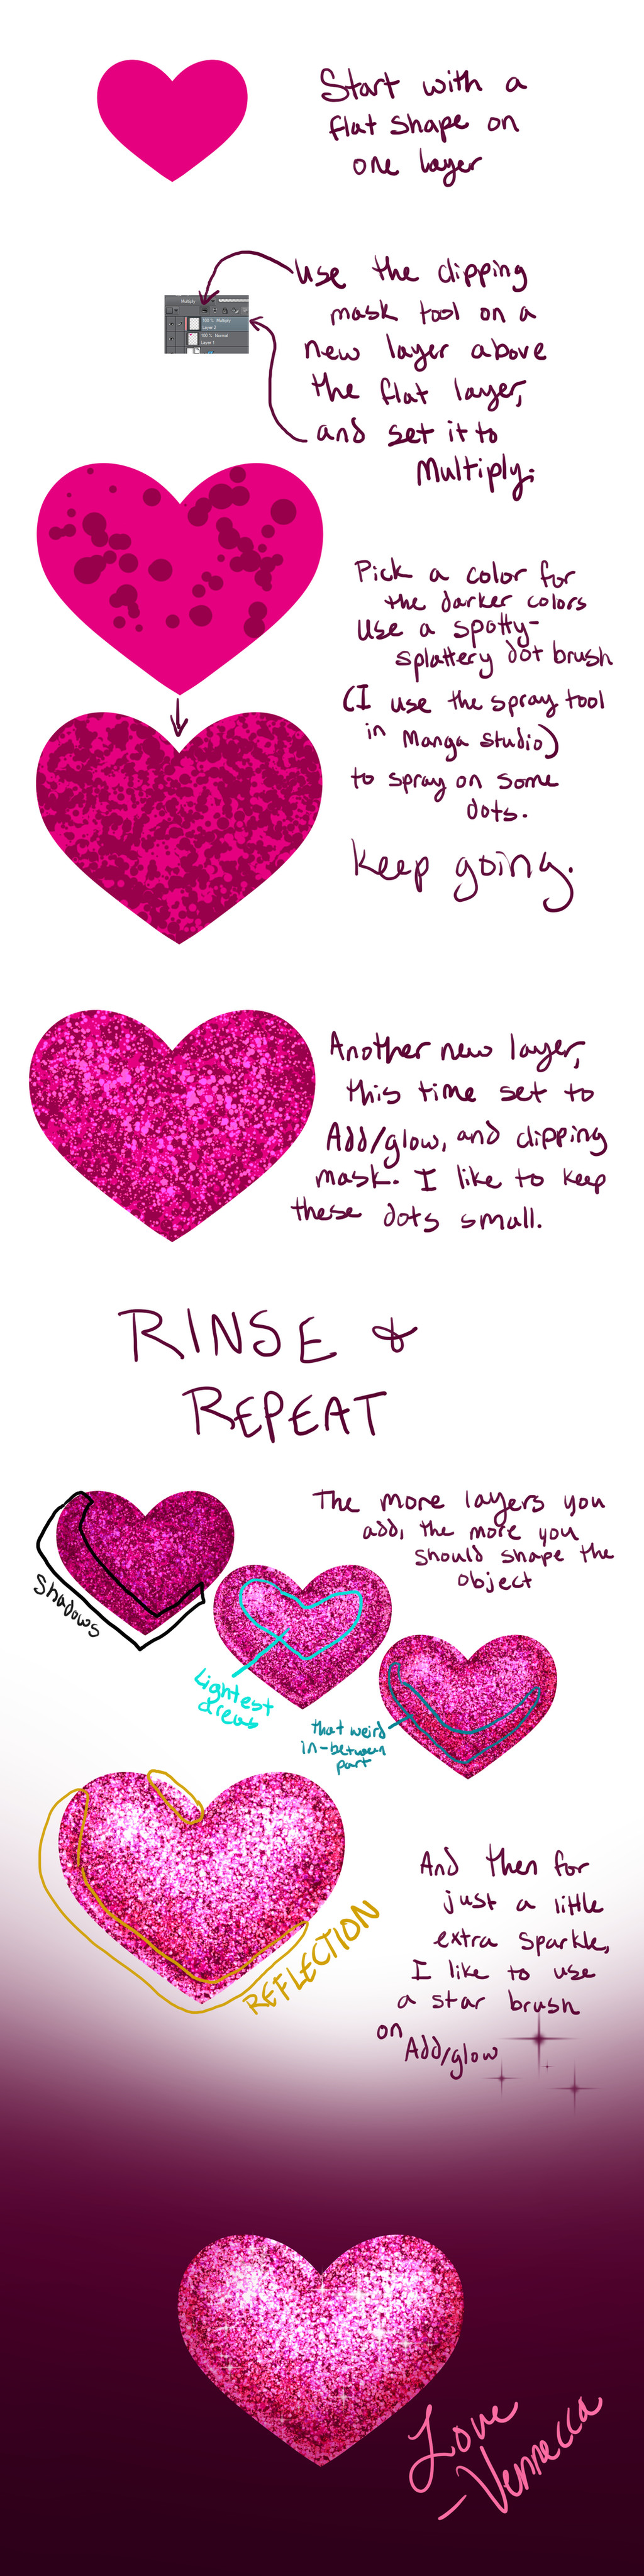 Start with a
flat shape on
one layer
Use the clipping
mask tool on a
new layer above
the flat layer,
and set it to
Multiply.
Multiply
100 % Multiply
Layer 2
100 % Normal
Layer 1
Pick a color for
the darker colors
Use a spotty-
splattery dot brush
(I use the spray tool
in Manga Studio)
to spray on some
dots.
Keep going.
Another new layer,
this time set to
Add/glow, and clipping
mask. I like to keep
these dots small.
RINSE &
REPEAT
The more layers you
add, the more you
should shape the
object
Shadows
Lightest
areas
that weird
in-between
part
REFLECTION
And then for
just a little
extra sparkle,
I like to use
a star brush
on Add/glow
Love
-Vennecca